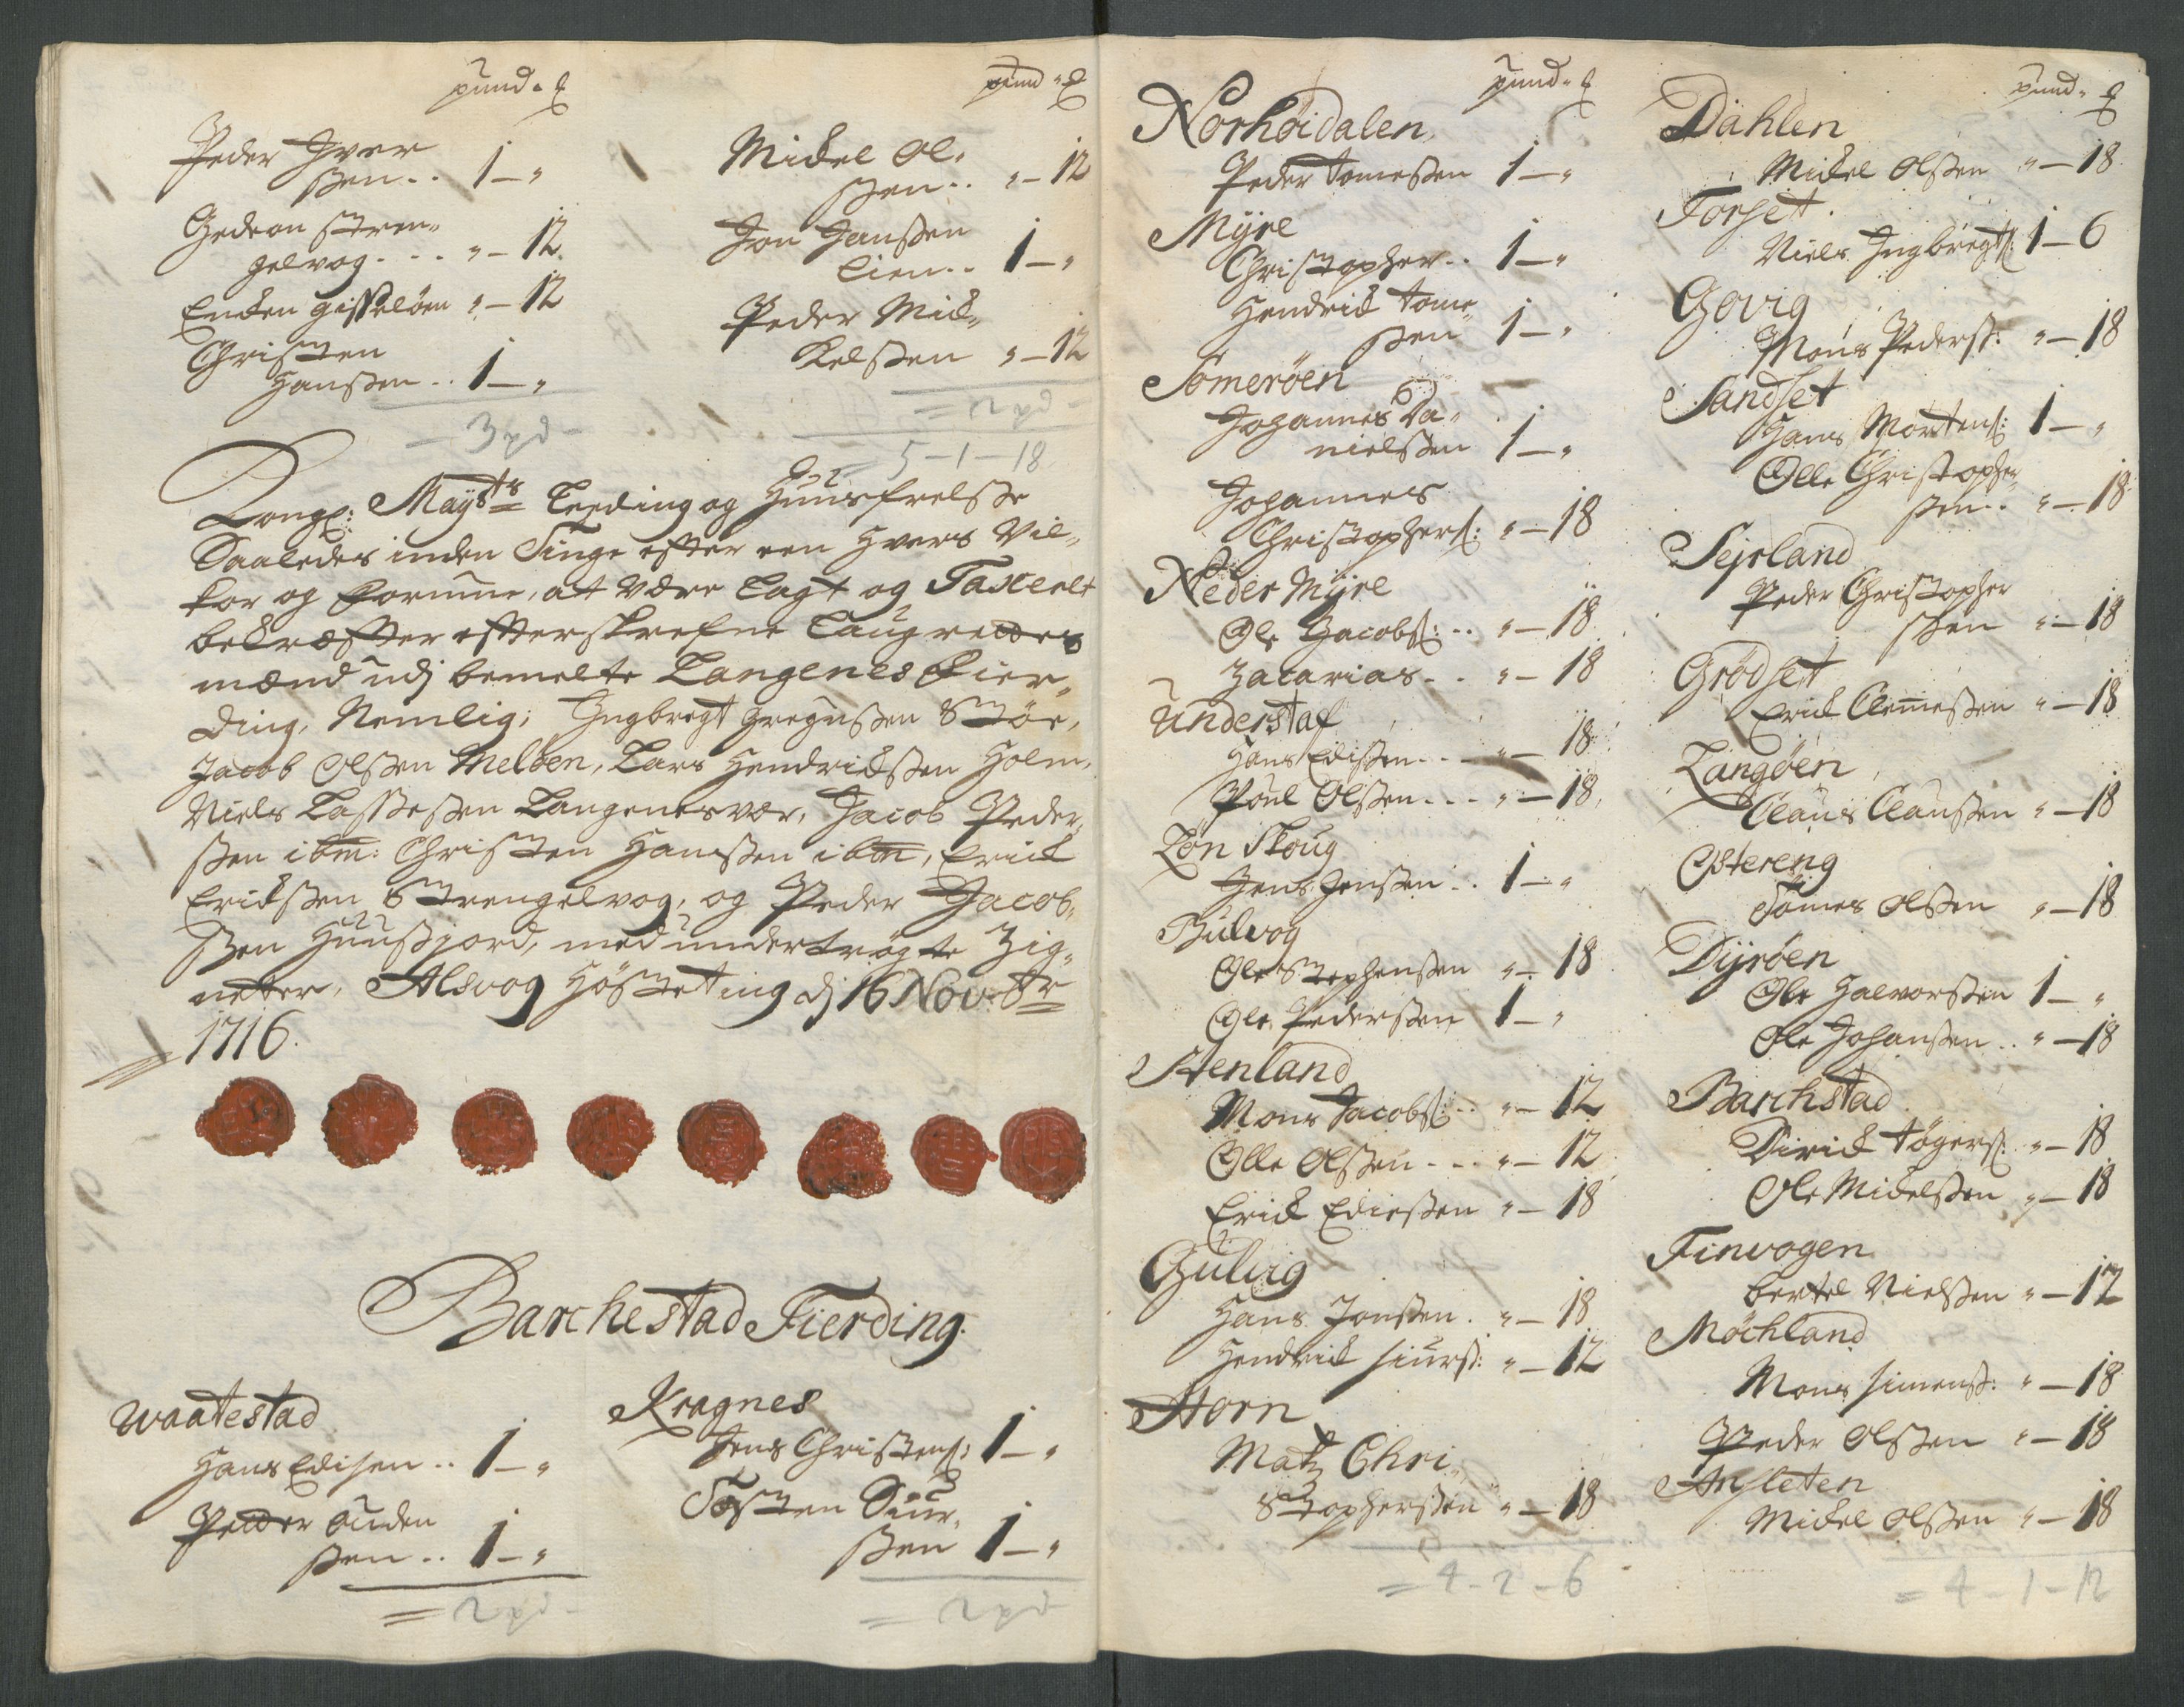 pund - ℔
Peder Iver
ßen .. 1 — "
Gedeon Stren„
gelvog . . . " — 12
Enken gisseløen " — 12
Christen
Hanßen .. 1 — "
— 3 pd —
pund - ℔
Mickel Ol„
ßen .. " — 12
Jon Hanßen
Lien .. 1 — "
Peder Mic„
kelßen " — 12
= 2 pd —
5 — 1 — 18
Kongl: Mayts Leeding og Huusfrelse
Saaledes inden Tinge efter een Hvers Vil„
kor og Formue, at være Lagt og Taxerlt
bekræfter efterskrefne Laugrettes
mænd udj bemelte Langenes Fier„
ding, Nemlig; Ingbregt Gregußen Støe,
Jacob Olßen Melöen, Lars Hendrickßen Holm,
Niels Laßeßen Langenesvær, Jacob Peder„
ßen ibm: Christen Hanßen ibm, Erick
Erickßen Strengelvog, og Peder Jacob„
ßen Huußfjord, med undertrögte Zig„
neter, Alsvog Hösteting dj 16 Novembr
1716.
Barchestad Fierding.
Waatestad
Hans Edisen .. 1 — "
Peder Auden
ßen .. 1 — "
= 2 pd —
Kragnes
Jens Christens: 1 — "
Tosten Siur„
ßen 1 — "
= 2 pd
pund - ℔
Norhöidalen
Peder Tomeßen 1 — "
Myre
Christopher .. 1 — "
Hendrick Tome„
ßen 1 — "
Someröen
Johannes Da„
nielßen 1 — "
Johannes
Christophers: " — 18
Neder Myre
Ole Jacobs: .. " — 18
Zacarias . . " — 18
Understaf
Hans Edißen . . . " — 18
Poul Olßen . . . " — 18
Lön Skoug
Jens Jenßen .. 1 — "
Bulvog
Ole Stephenßen " — 18
Ole Pederßen 1 — "
Stenland
Mons Jacobs: .. " — 12
Olle Olßen . . . " — 12
Erick Edießen " — 18
Gulvig
Hans Jonßen . " — 18
Hendrick Siurs: " — 12
Horn
Matz Chri„
stopherßen " — 18
= 4 — 2 — 6
pund - ℔
Dahlen
Mickel Olßen " — 18
Forset
Niels Ingbregts: 1 — 6
Govig
Mons Peders: " — 18
Sandset
Hans Mortens: 1 — "
Olle Christopher„
ßen .. " — 18
Sejrland
Peder Christopher
ßen " — 18
Grödset
Erick Clemeßen " — 18
Langöen
Claus Claußen " — 18
Ostereng
Tomes Olßen " — 18
Dyröen
Ole Halvorßen 1 — "
Ole Johanßen .. " — 18
Barchstad
Dirick Tögers: " — 18
Ole Mickelßen " — 18
Finvogen
Bertel Nielßen " — 12
Möchland
Mons Simens: " — 18
Peder Olßen " — 18
Ansleten
Mickel Olßen " — 18
= 4 — 1 — 12